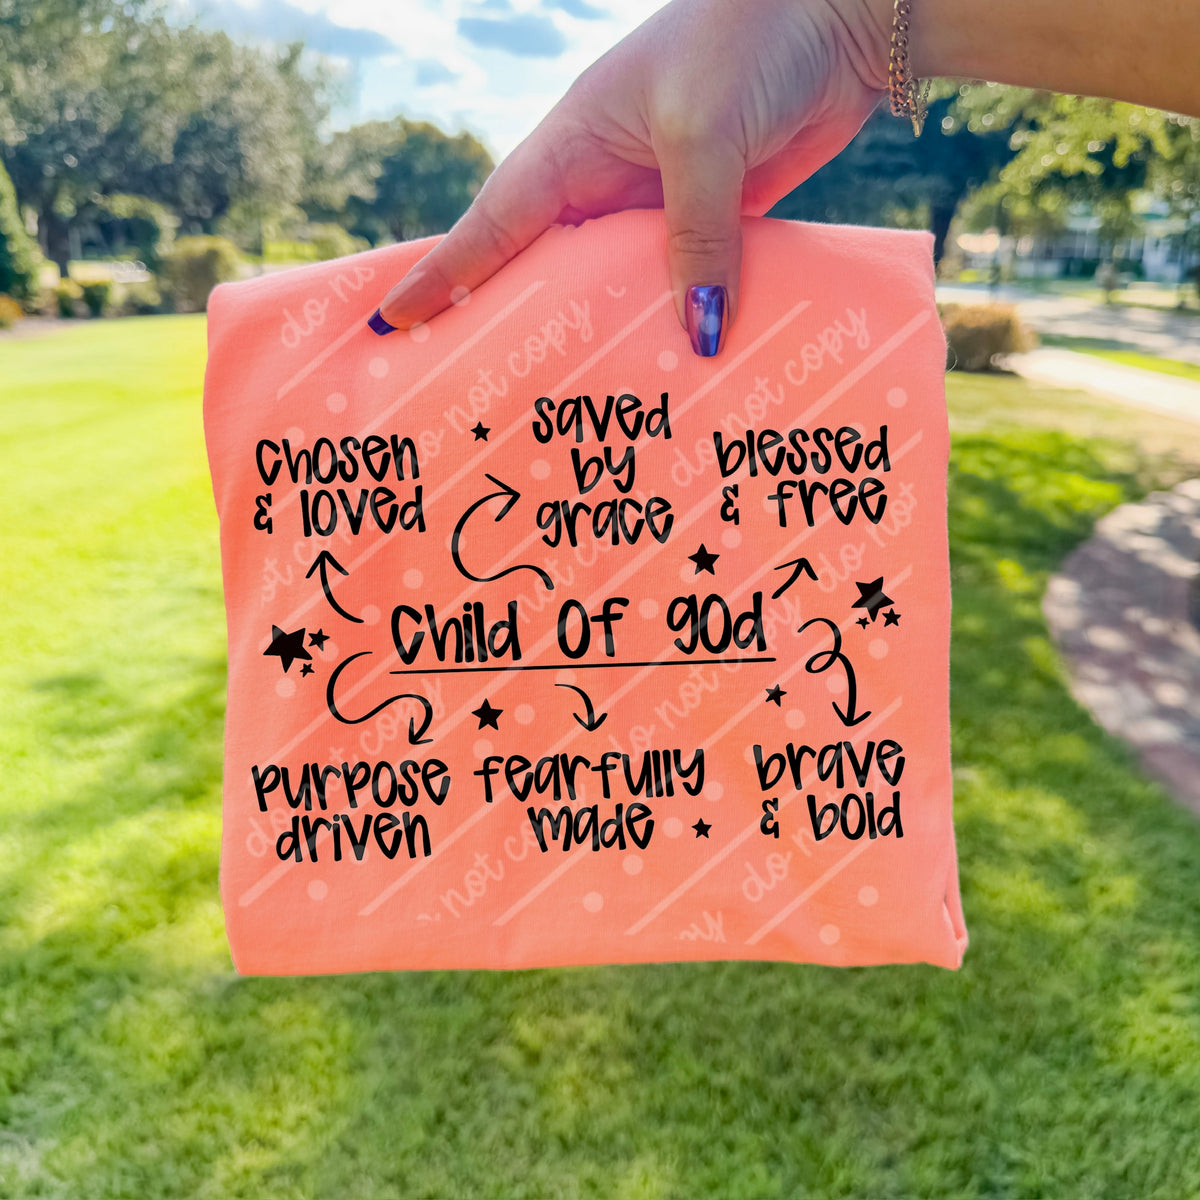 chosen
& loved
saved
by
grace
blessed
& free
Child of god
purpose
driven
fearfully
made
brave
& bold
do not copy
do not copy
do not copy
do not copy
do not copy
do not